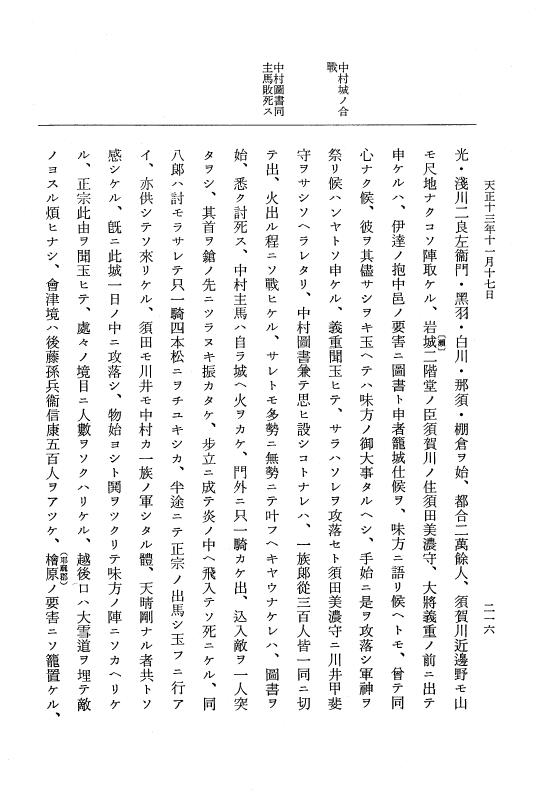 天正十三年十一月十七日
二一六
中村城ノ合
戰
中村圖書同
主馬敗死ス
光・淺川二良左衞門・黑羽・白川・那須・棚倉ヲ始、都合二萬餘人、須賀川近邊野モ山
モ尺地ナクコソ陣取ケル、岩城(瀨)二階堂ノ臣須賀川ノ住須田美濃守、大將義重ノ前ニ出テ
申ケルハ、伊達ノ抱中邑ノ要害ニ圖書ト申者籠城仕候ヲ、味方ニ語リ候ヘトモ、曾テ同
心ナク候、彼ヲ其儘サシヲキ玉ヘテハ味方ノ御大事タルヘシ、手始ニ是ヲ攻落シ軍神ヲ
祭リ候ハンヤトソ申ケル、義重聞玉ヒテ、サラハソレヲ攻落セト須田美濃守ニ川井甲斐
守ヲサシソヘラレタリ、中村圖書兼テ思ヒ設シコトナレハ、一族郞從三百人皆一同ニ切
テ出、火出ル程ニソ戰ヒケル、サレトモ多勢ニ無勢ニテ叶フヘキヤウナケレハ、圖書ヲ
始、悉ク討死ス、中村主馬ハ自ラ城ヘ火ヲカケ、門外ニ只一騎カケ出、込入敵ヲ一人突
タヲシ、其首ヲ鎗ノ先ニツラヌキ振カタケ、步立ニ成テ炎ノ中ヘ飛入テソ死ニケル、同
八郞ハ討モラサレテ只一騎四本松ニヲチユキシカ、半途ニテ正宗ノ出馬シ玉フニ行ア
イ、亦供シテソ來リケル、須田モ川井モ中村カ一族ノ軍シタル體、天晴剛ナル者共トソ
感シケル、旣ニ此城一日ノ中ニ攻落シ、物始ヨシト鬨ヲツクリテ味方ノ陣ニソカヘリケ
ル、正宗此由ヲ聞玉ヒテ、處々ノ境目ニ人數ヲソクハリケル、越後口ハ大雪道ヲ埋テ敵
ノヨスル煩ヒナシ、會津境ハ後藤孫兵衞信康五百人ヲアツケ、檜原(耶麻郡)ノ要害ニソ籠置ケル、